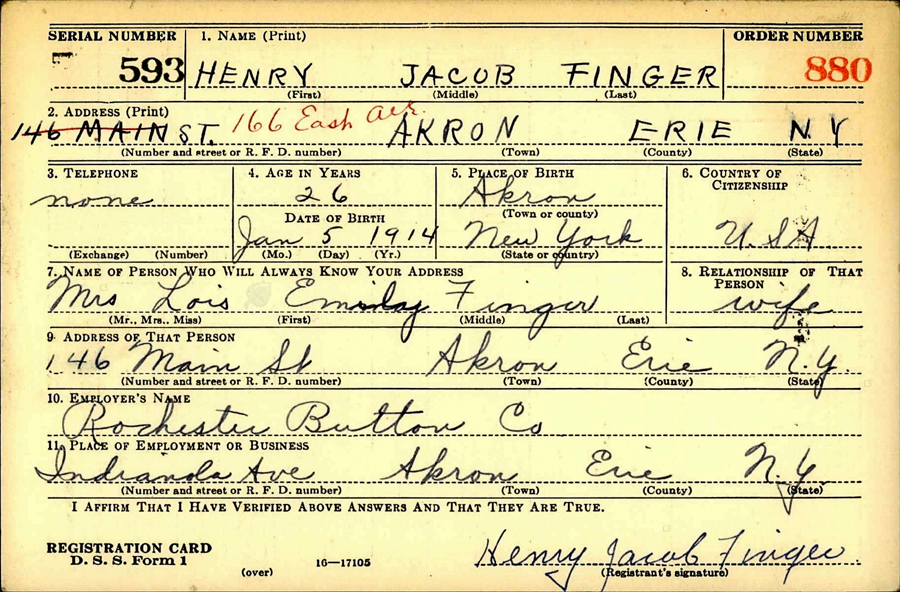 SERIAL NUMBER 1. NAME (Print) ORDER NUMBER
593 HENRY JACOB FINGER 880
(First) (Middle) (Last)
2. ADDRESS (Print)
146 MAIN ST. 166 East Ave. AKRON ERIE N Y
(Number and street or R. F. D. number) (Town) (County) (State)
3. TELEPHONE 4. AGE IN YEARS 5. PLACE OF BIRTH 6. COUNTRY OF CITIZENSHIP
none 26 Akron
(Town or county)
DATE OF BIRTH
Jan 5 1914 New York U.S.A.
(Exchange) (Number) (Mo.) (Day) (Yr.) (State or country)
7. NAME OF PERSON WHO WILL ALWAYS KNOW YOUR ADDRESS 8. RELATIONSHIP OF THAT PERSON
Mrs Lois Finger wife
(Mr., Mrs., Miss) (First) (Middle) (Last)
9. ADDRESS OF THAT PERSON
146 Main St Akron Erie N.Y.
(Number and street or R. F. D. number) (Town) (County) (State)
10. EMPLOYER'S NAME
Rochester Button Co
11. PLACE OF EMPLOYMENT OR BUSINESS
Indianola Ave Akron Erie N.Y.
(Number and street or R. F. D. number) (Town) (County) (State)
I AFFIRM THAT I HAVE VERIFIED ABOVE ANSWERS AND THAT THEY ARE TRUE.
REGISTRATION CARD
D. S. S. Form 1
(over) 16—17105 Henry Jacob Finger
(Registrant's signature)